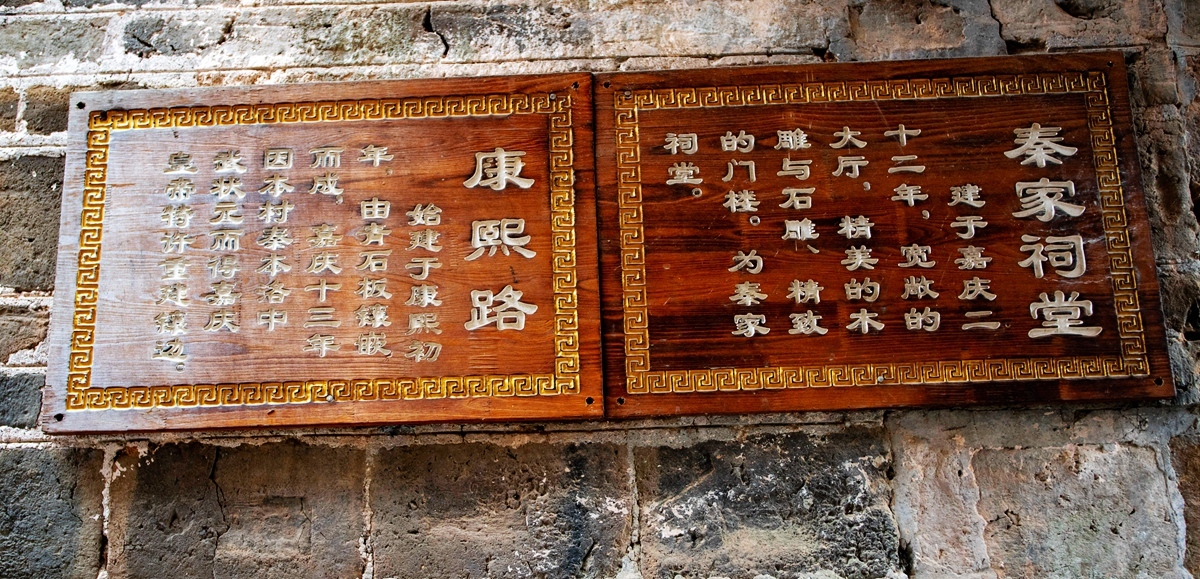 秦家祠堂
建于嘉庆二
十二年，宽敞的
大厅，精美的木
雕与石雕、精致
的门楼。为秦家
祠堂。
康熙路
始建于康熙初
年，由青石板镶嵌
而成，嘉庆十三年
因本村秦本洛中
武状元而得嘉庆
皇帝特许重建镶边。